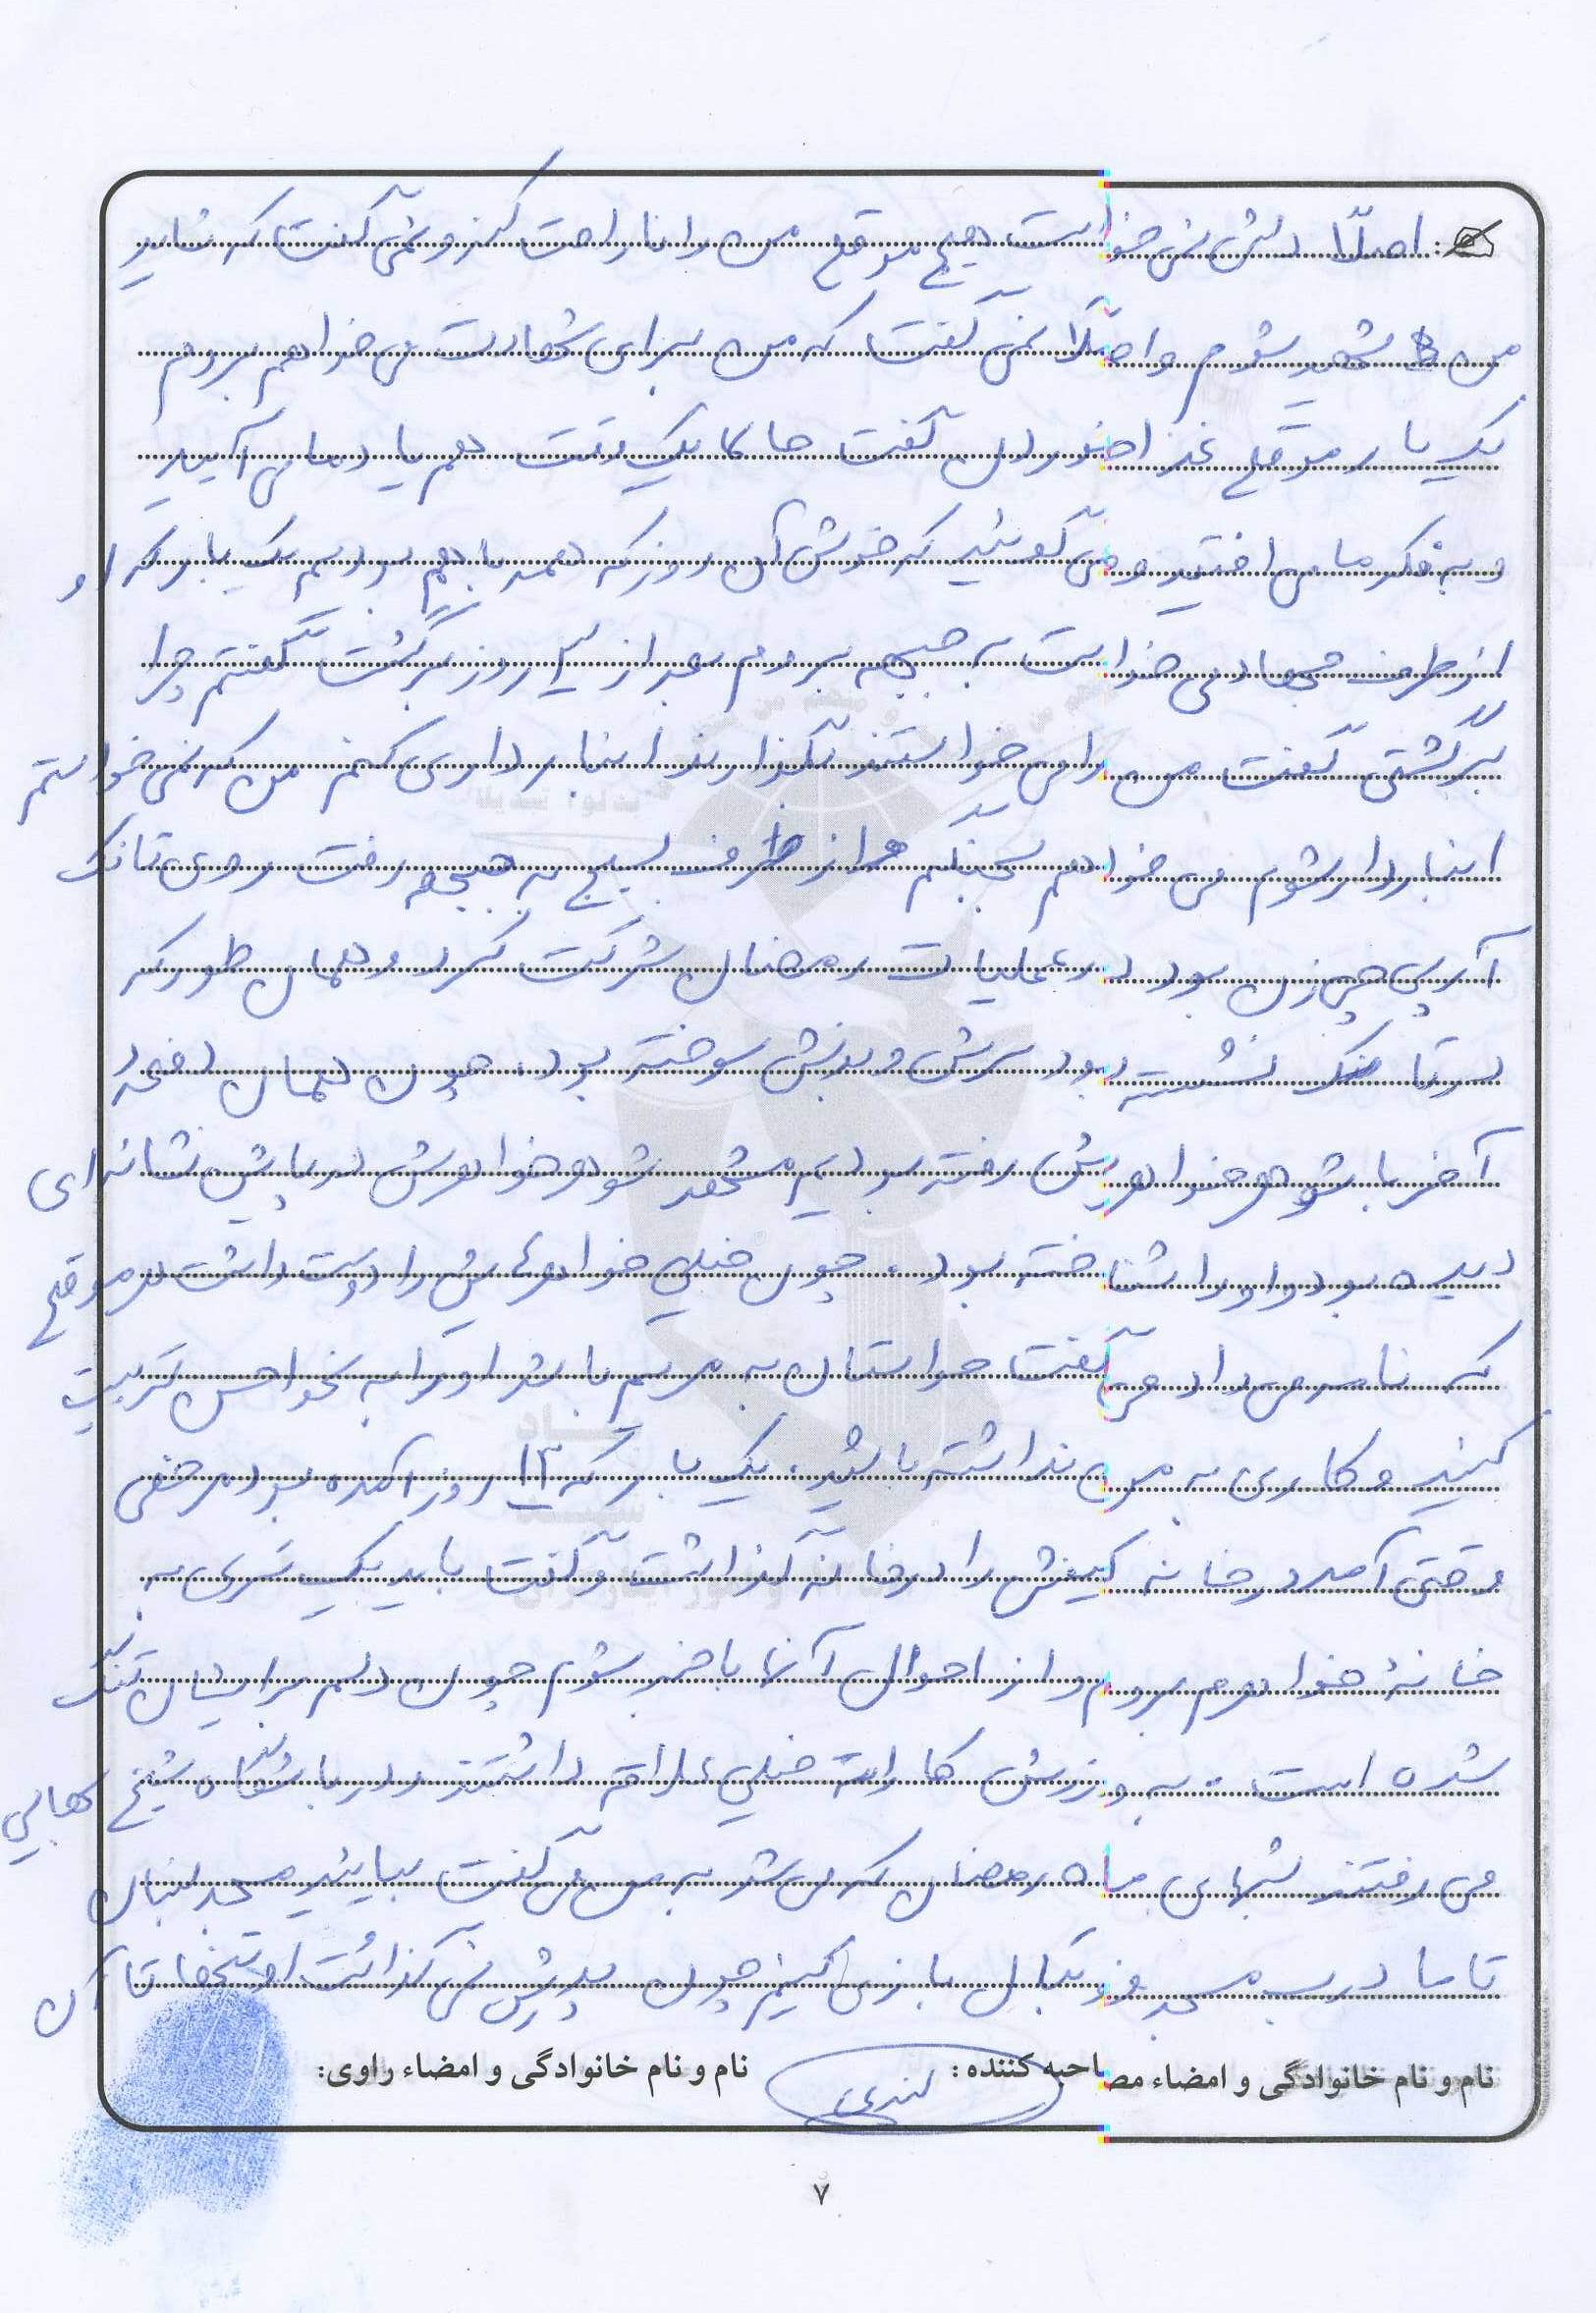 اصلاً دلش نمی خواست هیچ موقع من را ناراحت کند و نمی گفت که شاید
من شهید شوم و اصلاً نمی گفت که من برای شهادت می خواهم بروم
یک بار موقع غذا خوردن گفت حالا یک وقت هم یاد ما می آیید
و به فکر ما می افتید و می گوئید که خوش آن روز که همه با هم بودیم یک بار که او
از طرف جهاد می خواست به جبهه برود بعد از روز برگشت گفتم چرا
برگشتی گفت من را می خواستند بگذارند انبارداری کنم من که نمی خواستم
انباردار شوم می خواهم بجنگم و از طرف بسیج به جبهه رفت روی تانک
آرپی چی زن بود در عملیات رمضان شرکت کرد و همان طور که
در تانک نشسته بود سرش و بدنش سوخته بود. چون همان دفعه
آخر با شوهر خواهرش رفته بودیم مشهد شوهر خواهرش در پایش نشانه ای
دیده بود و او را شناخته بود. چون خیلی خواهرهایش را دوست داشت هر موقع
که نامه می داد می گفت حواستان به مریم باشد او را به نحو احسن تربیت
کنید و کاری به من نداشته باشید. یک بار که ۱۲ روز آمده بود مرخصی
وقتی آمد در خانه کیفش را در خانه گذاشت و گفت باید یک سری به
خانۀ خواهرم بروم و از احوال آنها باخبر شوم چون دلم برایشان تنگ
شده است. به ورزش کاراته خیلی علاقه داشتند و در باشگاه شیخ بهایی
می رفتند شبهای ماه رمضان که می شد به من می گفت بیایید مسجد دنبال
تا ما درب مسجد فوتبال بازی کنیم چون پدرش نمی گذاشت او تنها تا آن
نام و نام خانوادگی و امضاء مصاحبه کننده: نام و نام خانوادگی و امضاء راوی:
۷